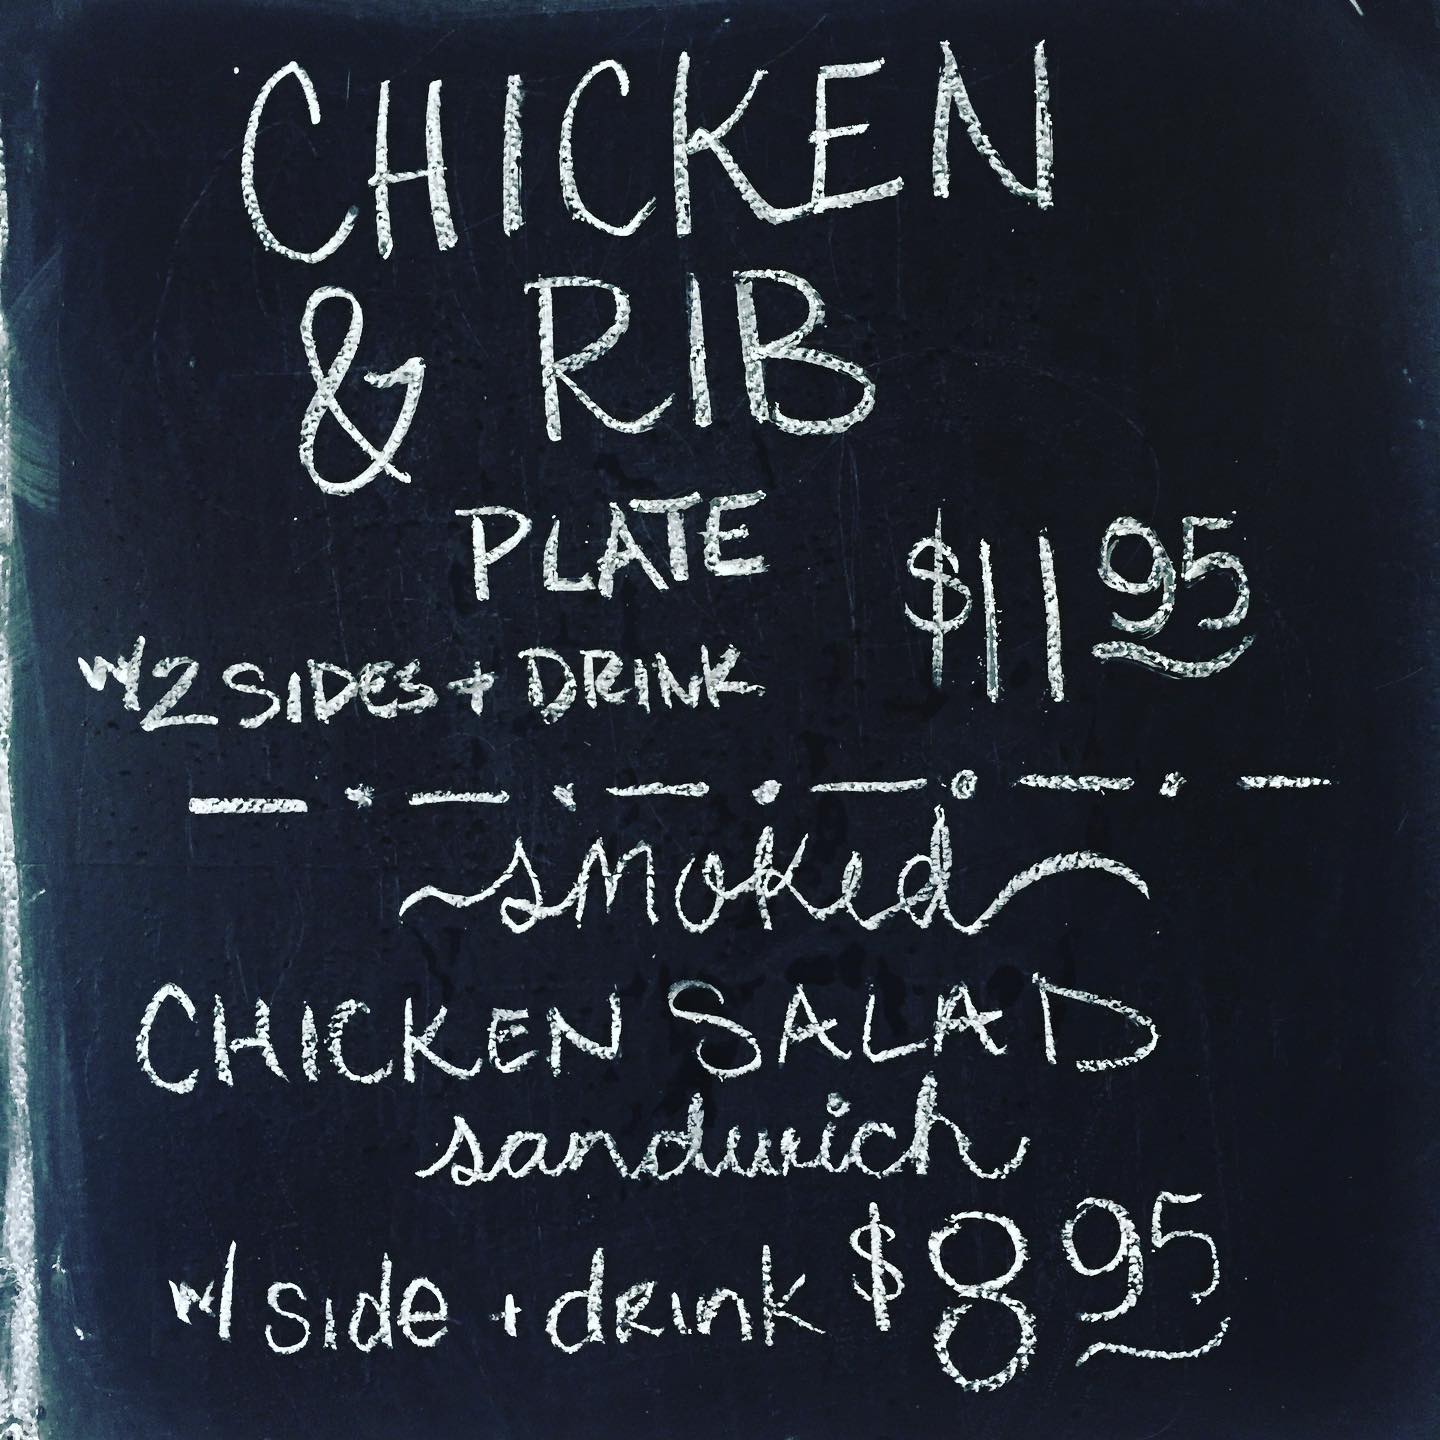 CHICKEN
& RIB
PLATE $11 95
w/2 SIDES + DRINK
smoked
CHICKEN SALAD
sandwich
w/ side + drink $8 95